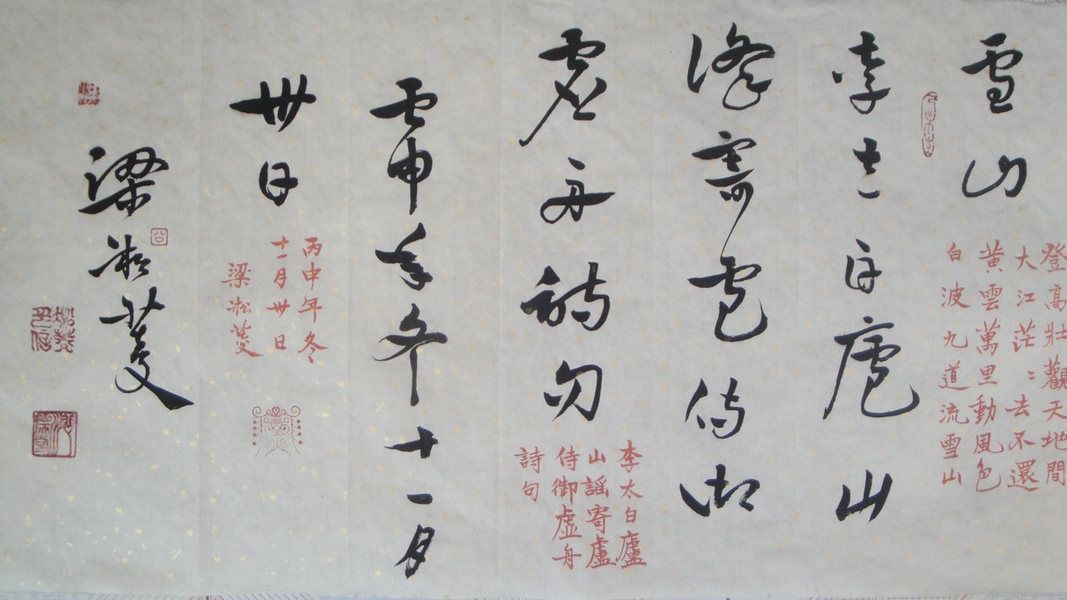 雪山
登高壯觀天地間
大江茫〻去不還
黃雲萬里動風色
白波九道流雪山
李太白廬山
謠寄盧侍御
虛舟詩句
李太白廬
山謠寄盧
侍御虛舟
詩句
丙申年冬十一月
卅日
丙申年冬
十一月卅日
梁淞蓤
梁淞蓤